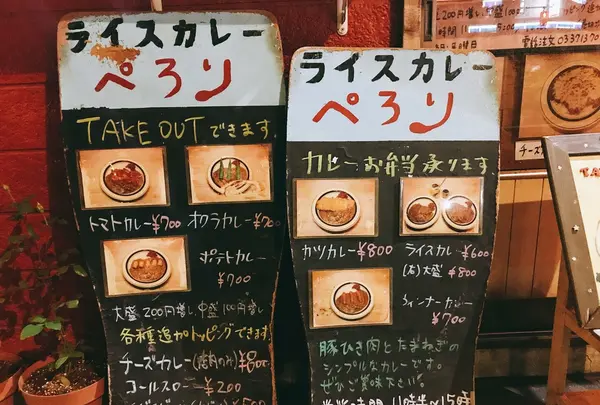 ライスカレー
ぺろり
TAKE OUTできます.
トマトカレー¥700
オクラカレー¥700
ポテトカレー
¥700
大盛200円増し中盛100円増し
各種追加トッピングできます.
チーズカレー(店内のみ)¥800
コールスロー ¥200
ライスカレー
ぺろり
カレーお弁当承ります.
カツカレー¥800
ライスカレー¥600
(右)大盛¥800
ウィンナーカレー
¥700
豚ひき肉とたまねぎの
シンプルなカレーです。
ぜひご賞味下さい。
11時半〜15時
200円増
電話注文 033713
チーズ